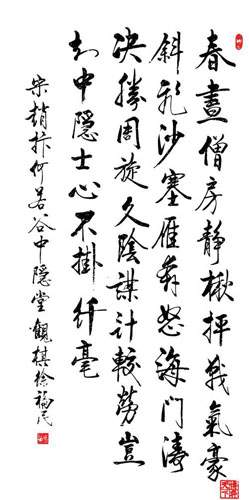 春晝僧房靜楸枰戰氣豪
斜形沙塞雁奔怒海門濤
決勝周旋久陰謀計較勞豈
知中隱士心不掛纤毫
宋趙抃何若谷中隱堂觀棋徐福民